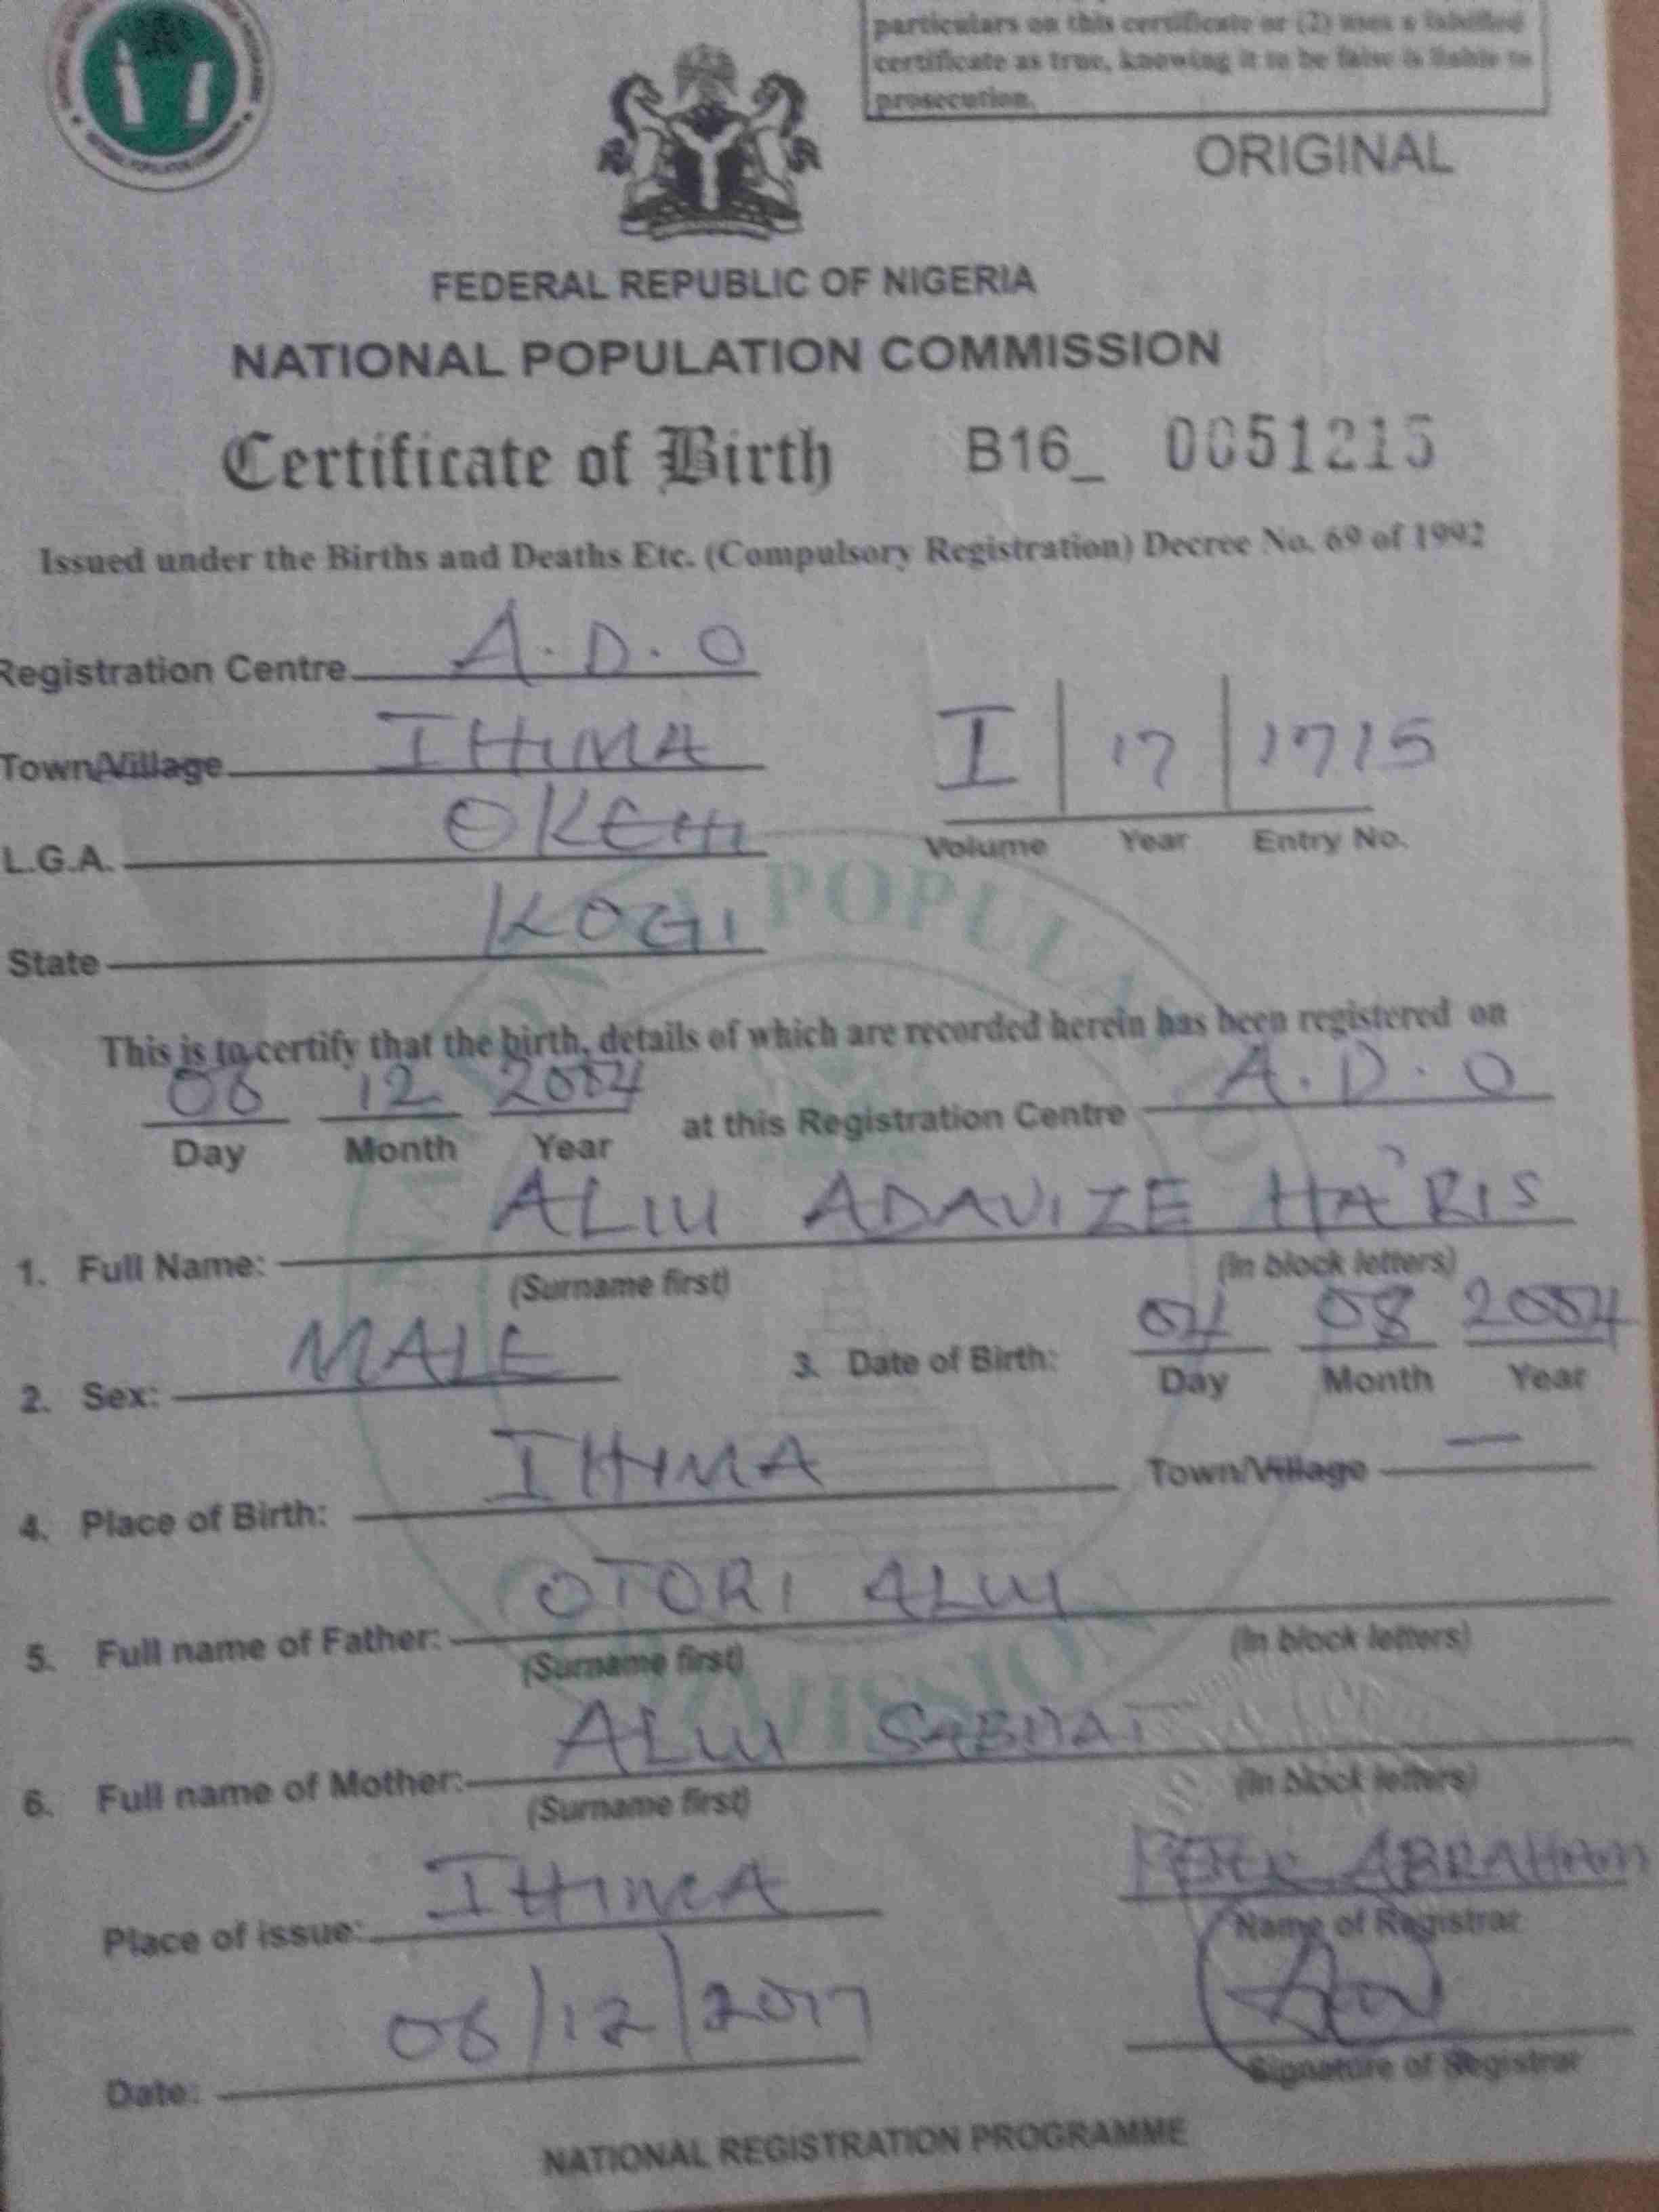 particulars on this certificate or (2) uses a falsified
certificate as true, knowing it to be false is liable to
prosecution.
ORIGINAL
FEDERAL REPUBLIC OF NIGERIA
NATIONAL POPULATION COMMISSION
Certificate of Birth B16_ 0051215
Issued under the Births and Deaths Etc. (Compulsory Registration) Decree No. 69 of 1992
Registration Centre A.D.O
Town/Village IHIMA
I 17 1715
L.G.A. OKEHI
Volume Year Entry No.
State KOGI
This is to certify that the birth, details of which are recorded herein has been registered on
06 12 2004 at this Registration Centre A.D.O
Day Month Year
1. Full Name: ALIU ADAVIZE HARIS
(Surname first) (In block letters)
2. Sex: MALE 3. Date of Birth: 04 08 2004
Day Month Year
4. Place of Birth: IHIMA Town/Village —
5. Full name of Father: OTORI ALIU
(Surname first) (In block letters)
6. Full name of Mother: ALIU
(Surname first) (In block letters)
Place of issue: IHIMA
PETER ABRAHAM
Name of Registrar
Date: 06/12/2017
Signature of Registrar
NATIONAL REGISTRATION PROGRAMME